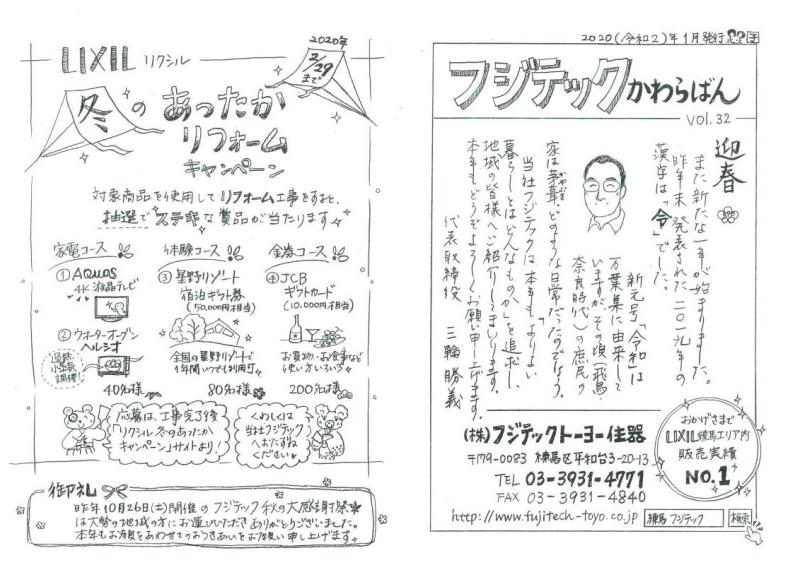 2020(令和2)年1月発行
フジテックかわらばん
vol.32
迎春
また新たな一年が始まりました。
昨年末発表された二〇一九年の
漢字は「令」でした。
新元号「令和」は
万葉集に由来して
いますが、その頃(飛鳥
奈良時代)の庶民の
家は茅葺、どのような日常だったのでしょう。
当社フジテックは本年も「よりよい
暮らしとはどんなものか」を追求し
地域の皆様へご紹介してまいります。
本年もどうぞよろしくお願い申し上げます。
代表取締役 三輪勝義
(株)フジテックトーヨー住器
〒179-0083 練馬区平和台3-20-13
TEL 03-3931-4771
FAX 03-3931-4840
http://www.fujitech-toyo.co.jp
練馬 フジテック
検索
おかげさまで
LIXIL練馬エリア内
販売実績
NO.1
LIXIL リクシル
2020年
2/29
まで
冬の あったか
リフォーム
キャンペーン
対象商品を使用してリフォーム工事をすると、
抽選でステキな賞品が当たります
家電コース
①AQUOS
4K液晶テレビ
②ウォーターオーブン
ヘルシオ
40名様
体験コース
③星野リゾート
宿泊ギフト券
(50,000円相当)
全国の星野リゾートで
1年間いつでも利用可
80名様
金券コース
④JCB
ギフトカード
(10,000円相当)
お買物・お食事など
使い方いろいろ
200名様
応募は、工事完了後
「リクシル 冬のあったか
キャンペーン」サイトより!
くわしくは
当社フジテック
へおたずね
ください
御礼
昨年10月26日(土)開催の フジテック秋の大感謝祭
は大勢の地域の方にお運びいただき ありがとうございました。
本年もお顔をあわせてのおつきあいを お願い申し上げます。